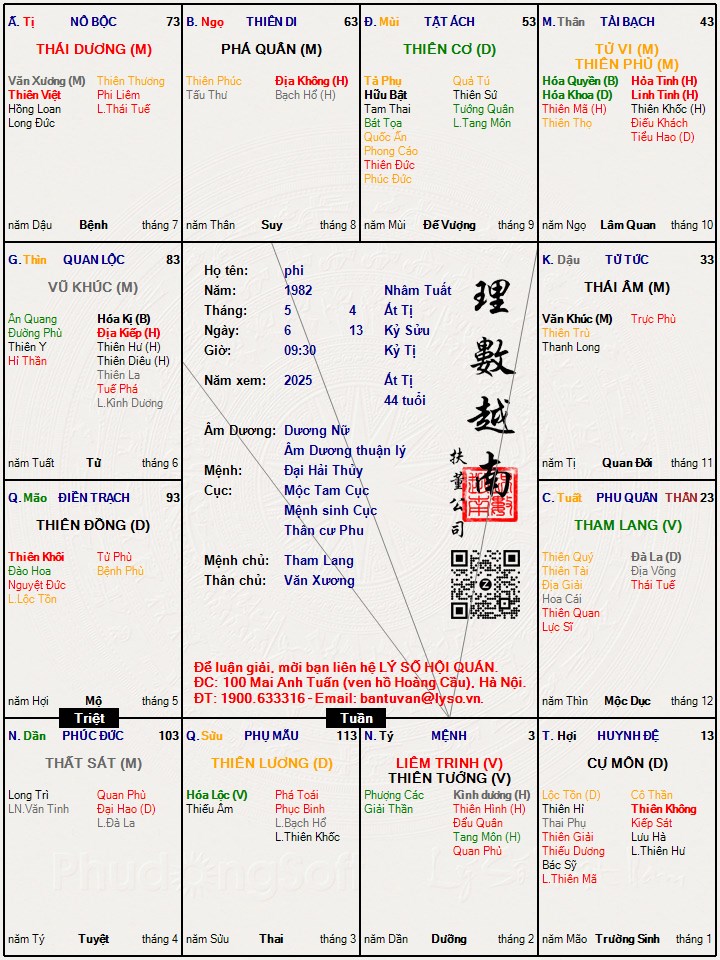 Ấ. Tị NÔ BỘC 73
THÁI DƯƠNG (M)
Văn Xương (M) Thiên Thương
Thiên Việt Phi Liêm
Hồng Loan L.Thái Tuế
Long Đức
năm Dậu Bệnh tháng 7
B. Ngọ THIÊN DI 63
PHÁ QUÂN (M)
Thiên Phúc Địa Không (H)
Tấu Thư Bạch Hổ (H)
năm Thân Suy tháng 8
Đ. Mùi TẬT ÁCH 53
THIÊN CƠ (D)
Tả Phụ Quả Tú
Hữu Bật Thiên Sứ
Tam Thai Tướng Quân
Bát Tọa L.Tang Môn
Quốc Ấn
Phong Cáo
Thiên Đức
Phúc Đức
năm Mùi Đế Vượng tháng 9
M. Thân TÀI BẠCH 43
TỬ VI (M)
THIÊN PHỦ (M)
Hóa Quyền (B) Hỏa Tinh (H)
Hóa Khoa (D) Linh Tinh (H)
Thiên Mã (H) Thiên Khốc (H)
Thiên Thọ Điếu Khách
Tiểu Hao (D)
năm Ngọ Lâm Quan tháng 10
G. Thìn QUAN LỘC 83
VŨ KHÚC (M)
Ân Quang Hóa Kị (B)
Đường Phù Địa Kiếp (H)
Thiên Y Thiên Hư (H)
Hỉ Thần Thiên Diêu (H)
Thiên La
Tuế Phá
L.Kình Dương
năm Tuất Tử tháng 6
Họ tên: phi
Năm: 1982 Nhâm Tuất
Tháng: 5 4 Ất Tị
Ngày: 6 13 Kỷ Sửu
Giờ: 09:30 Kỷ Tị
Năm xem: 2025 Ất Tị
44 tuổi
Âm Dương: Dương Nữ
Âm Dương thuận lý
Mệnh: Đại Hải Thủy
Cục: Mộc Tam Cục
Mệnh sinh Cục
Thân cư Phu
Mệnh chủ: Tham Lang
Thân chủ: Văn Xương
理數越南
扶董公司
Để luận giải, mời bạn liên hệ LÝ SỐ HỘI QUÁN.
ĐC: 100 Mai Anh Tuấn (ven hồ Hoàng Cầu), Hà Nội.
ĐT: 1900.633316 - Email: bantuvan@lyso.vn.
K. Dậu TỬ TỨC 33
THÁI ÂM (M)
Văn Khúc (M) Trực Phù
Thiên Trù
Thanh Long
năm Tị Quan Đới tháng 11
Q. Mão ĐIỀN TRẠCH 93
THIÊN ĐỒNG (D)
Thiên Khôi Tử Phù
Đào Hoa Bệnh Phù
Nguyệt Đức
L.Lộc Tồn
năm Hợi Mộ tháng 5
C. Tuất PHU QUÂN THÂN 23
THAM LANG (V)
Thiên Quý Đà La (D)
Thiên Tài Địa Võng
Địa Giải Thái Tuế
Hoa Cái
Thiên Quan
Lực Sĩ
năm Thìn Mộc Dục tháng 12
Triệt
Tuần
N. Dần PHÚC ĐỨC 103
THẤT SÁT (M)
Long Trì Quan Phù
LN.Văn Tinh Đại Hao (D)
L.Đà La
năm Tý Tuyệt tháng 4
Q. Sửu PHỤ MẪU 113
THIÊN LƯƠNG (D)
Hóa Lộc (V) Phá Toái
Thiếu Âm Phục Binh
L.Bạch Hổ
L.Thiên Khốc
năm Sửu Thai tháng 3
N. Tý MỆNH 3
LIÊM TRINH (V)
THIÊN TƯỚNG (V)
Phượng Các Kình dương (H)
Giải Thần Thiên Hình (H)
Đẩu Quân
Tang Môn (H)
Quan Phủ
năm Dần Dưỡng tháng 2
T. Hợi HUYNH ĐỆ 13
CỰ MÔN (D)
Lộc Tồn (D) Cô Thần
Thiên Hỉ Thiên Không
Thai Phụ Kiếp Sát
Thiên Giải Lưu Hà
Thiếu Dương L.Thiên Hư
Bác Sỹ
L.Thiên Mã
năm Mão Trường Sinh tháng 1